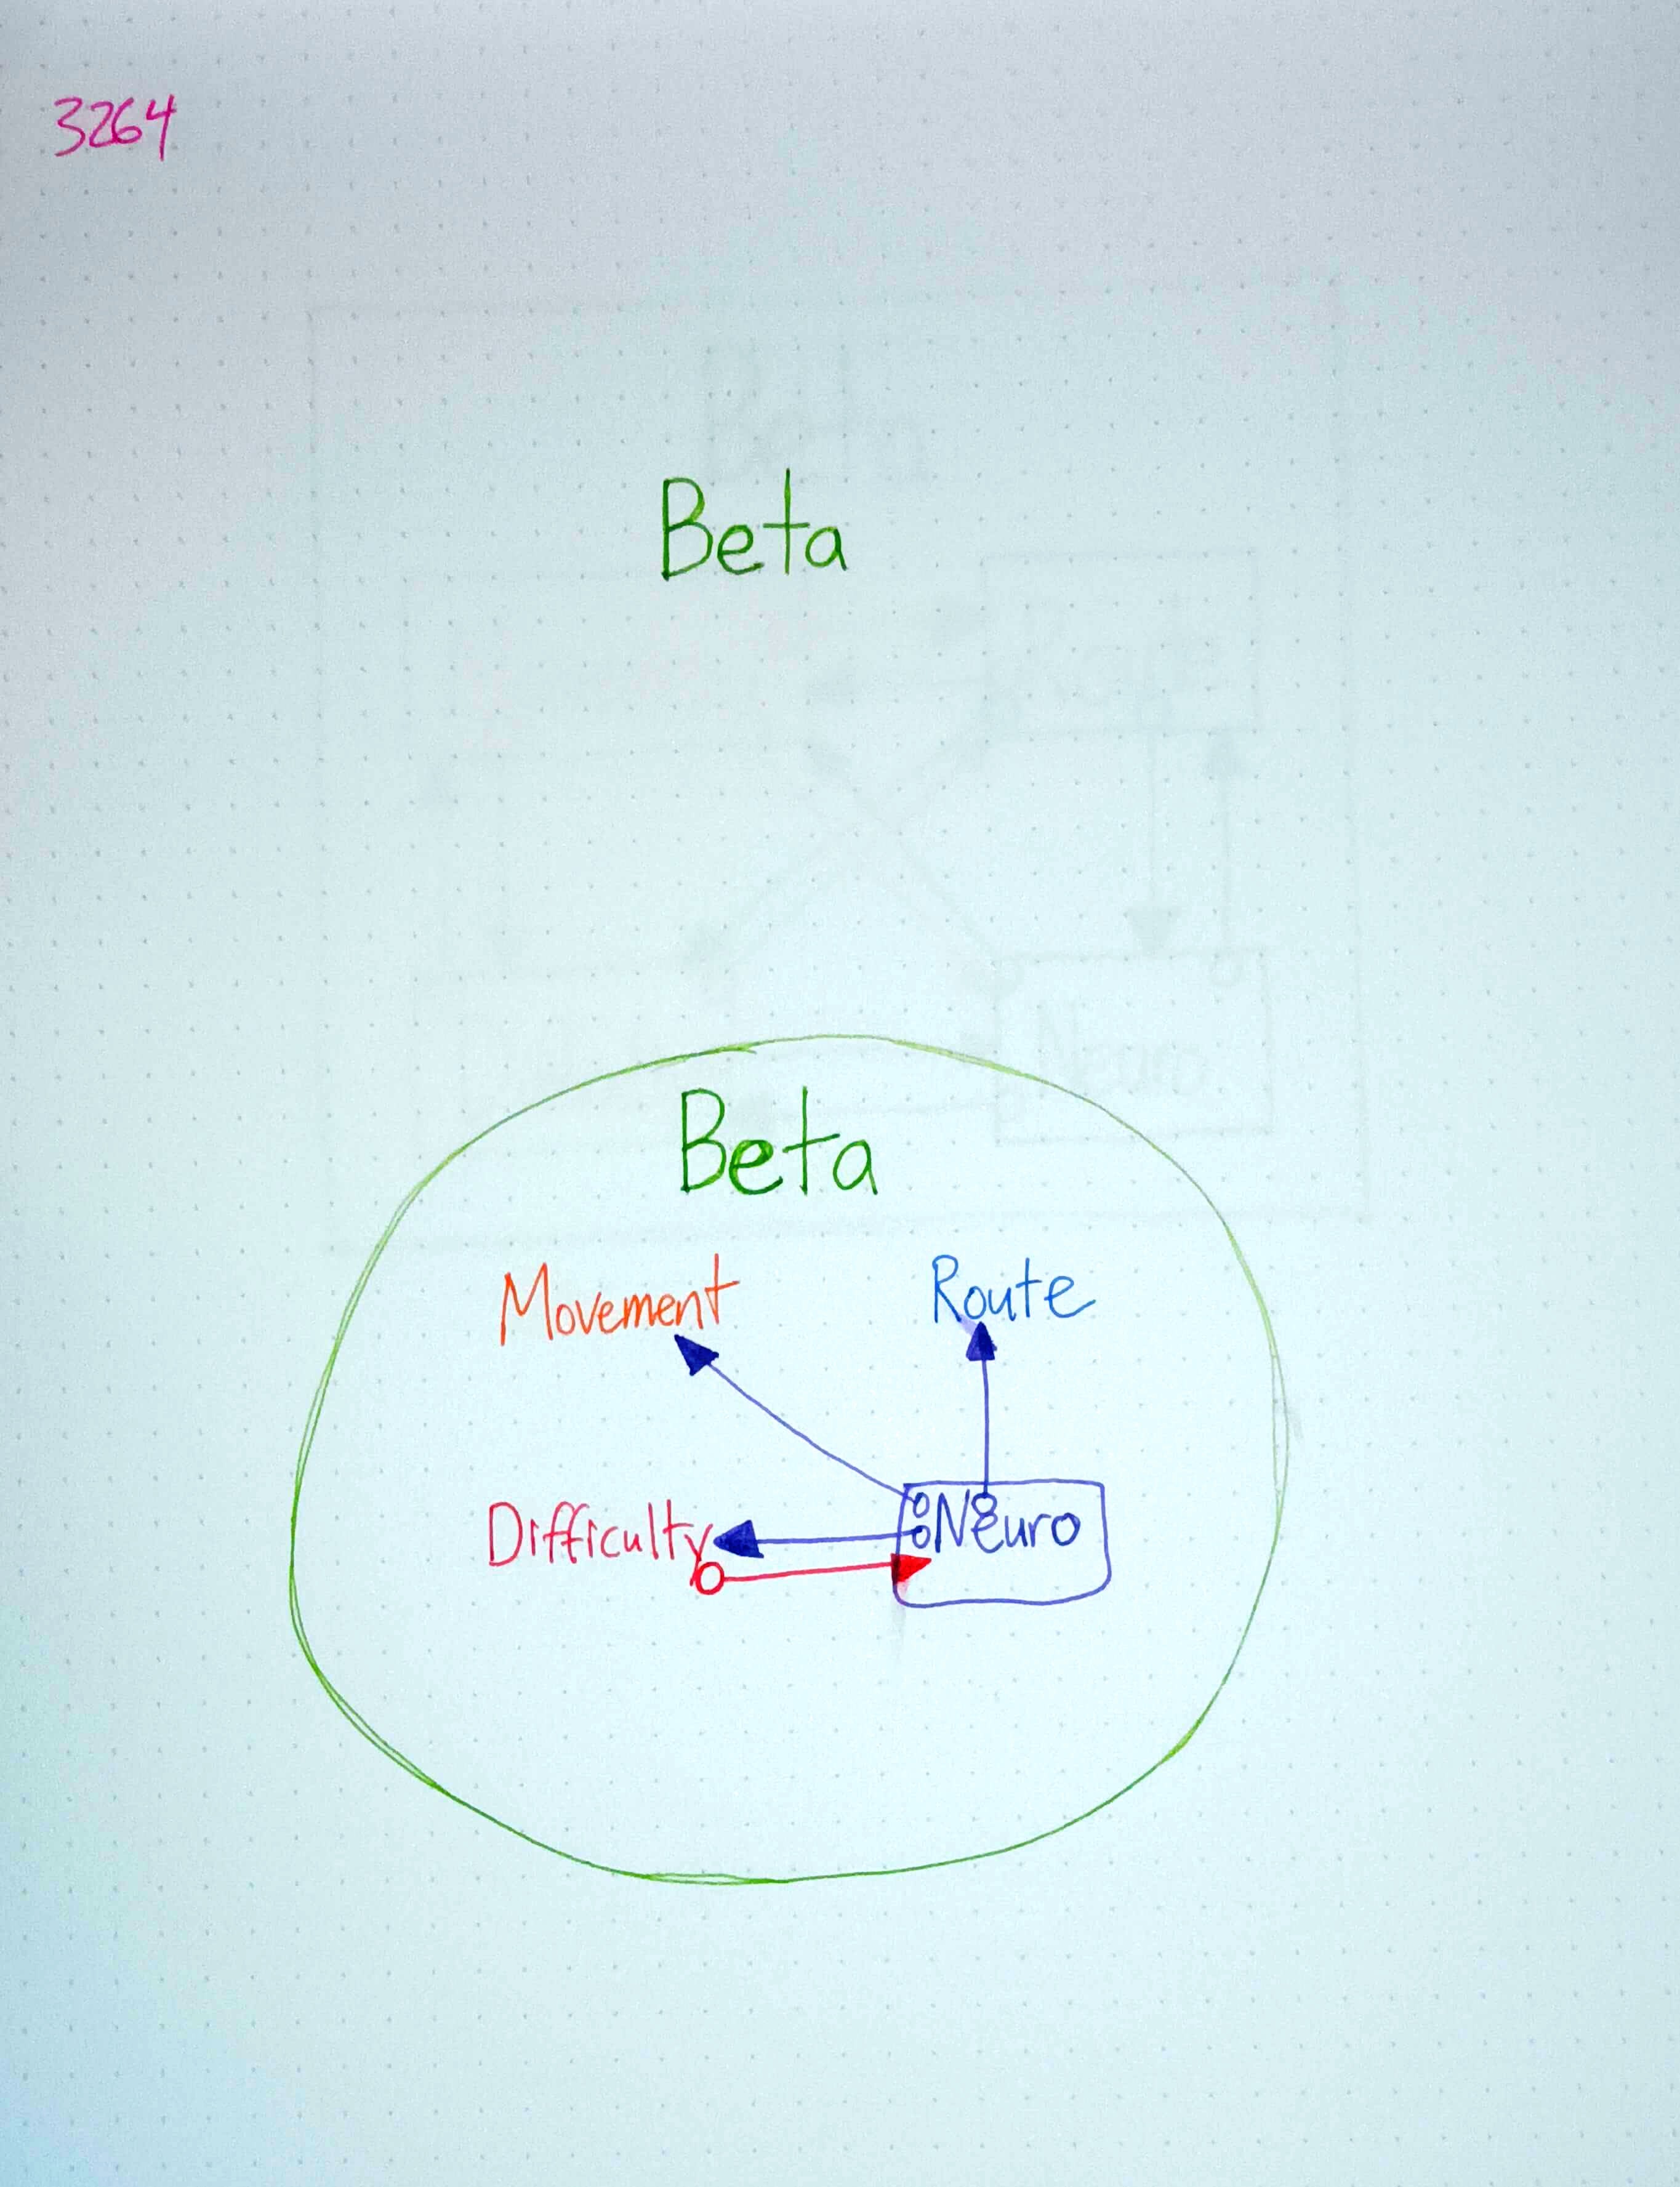 3264
Beta
Beta
Movement Route
Difficulty Neuro